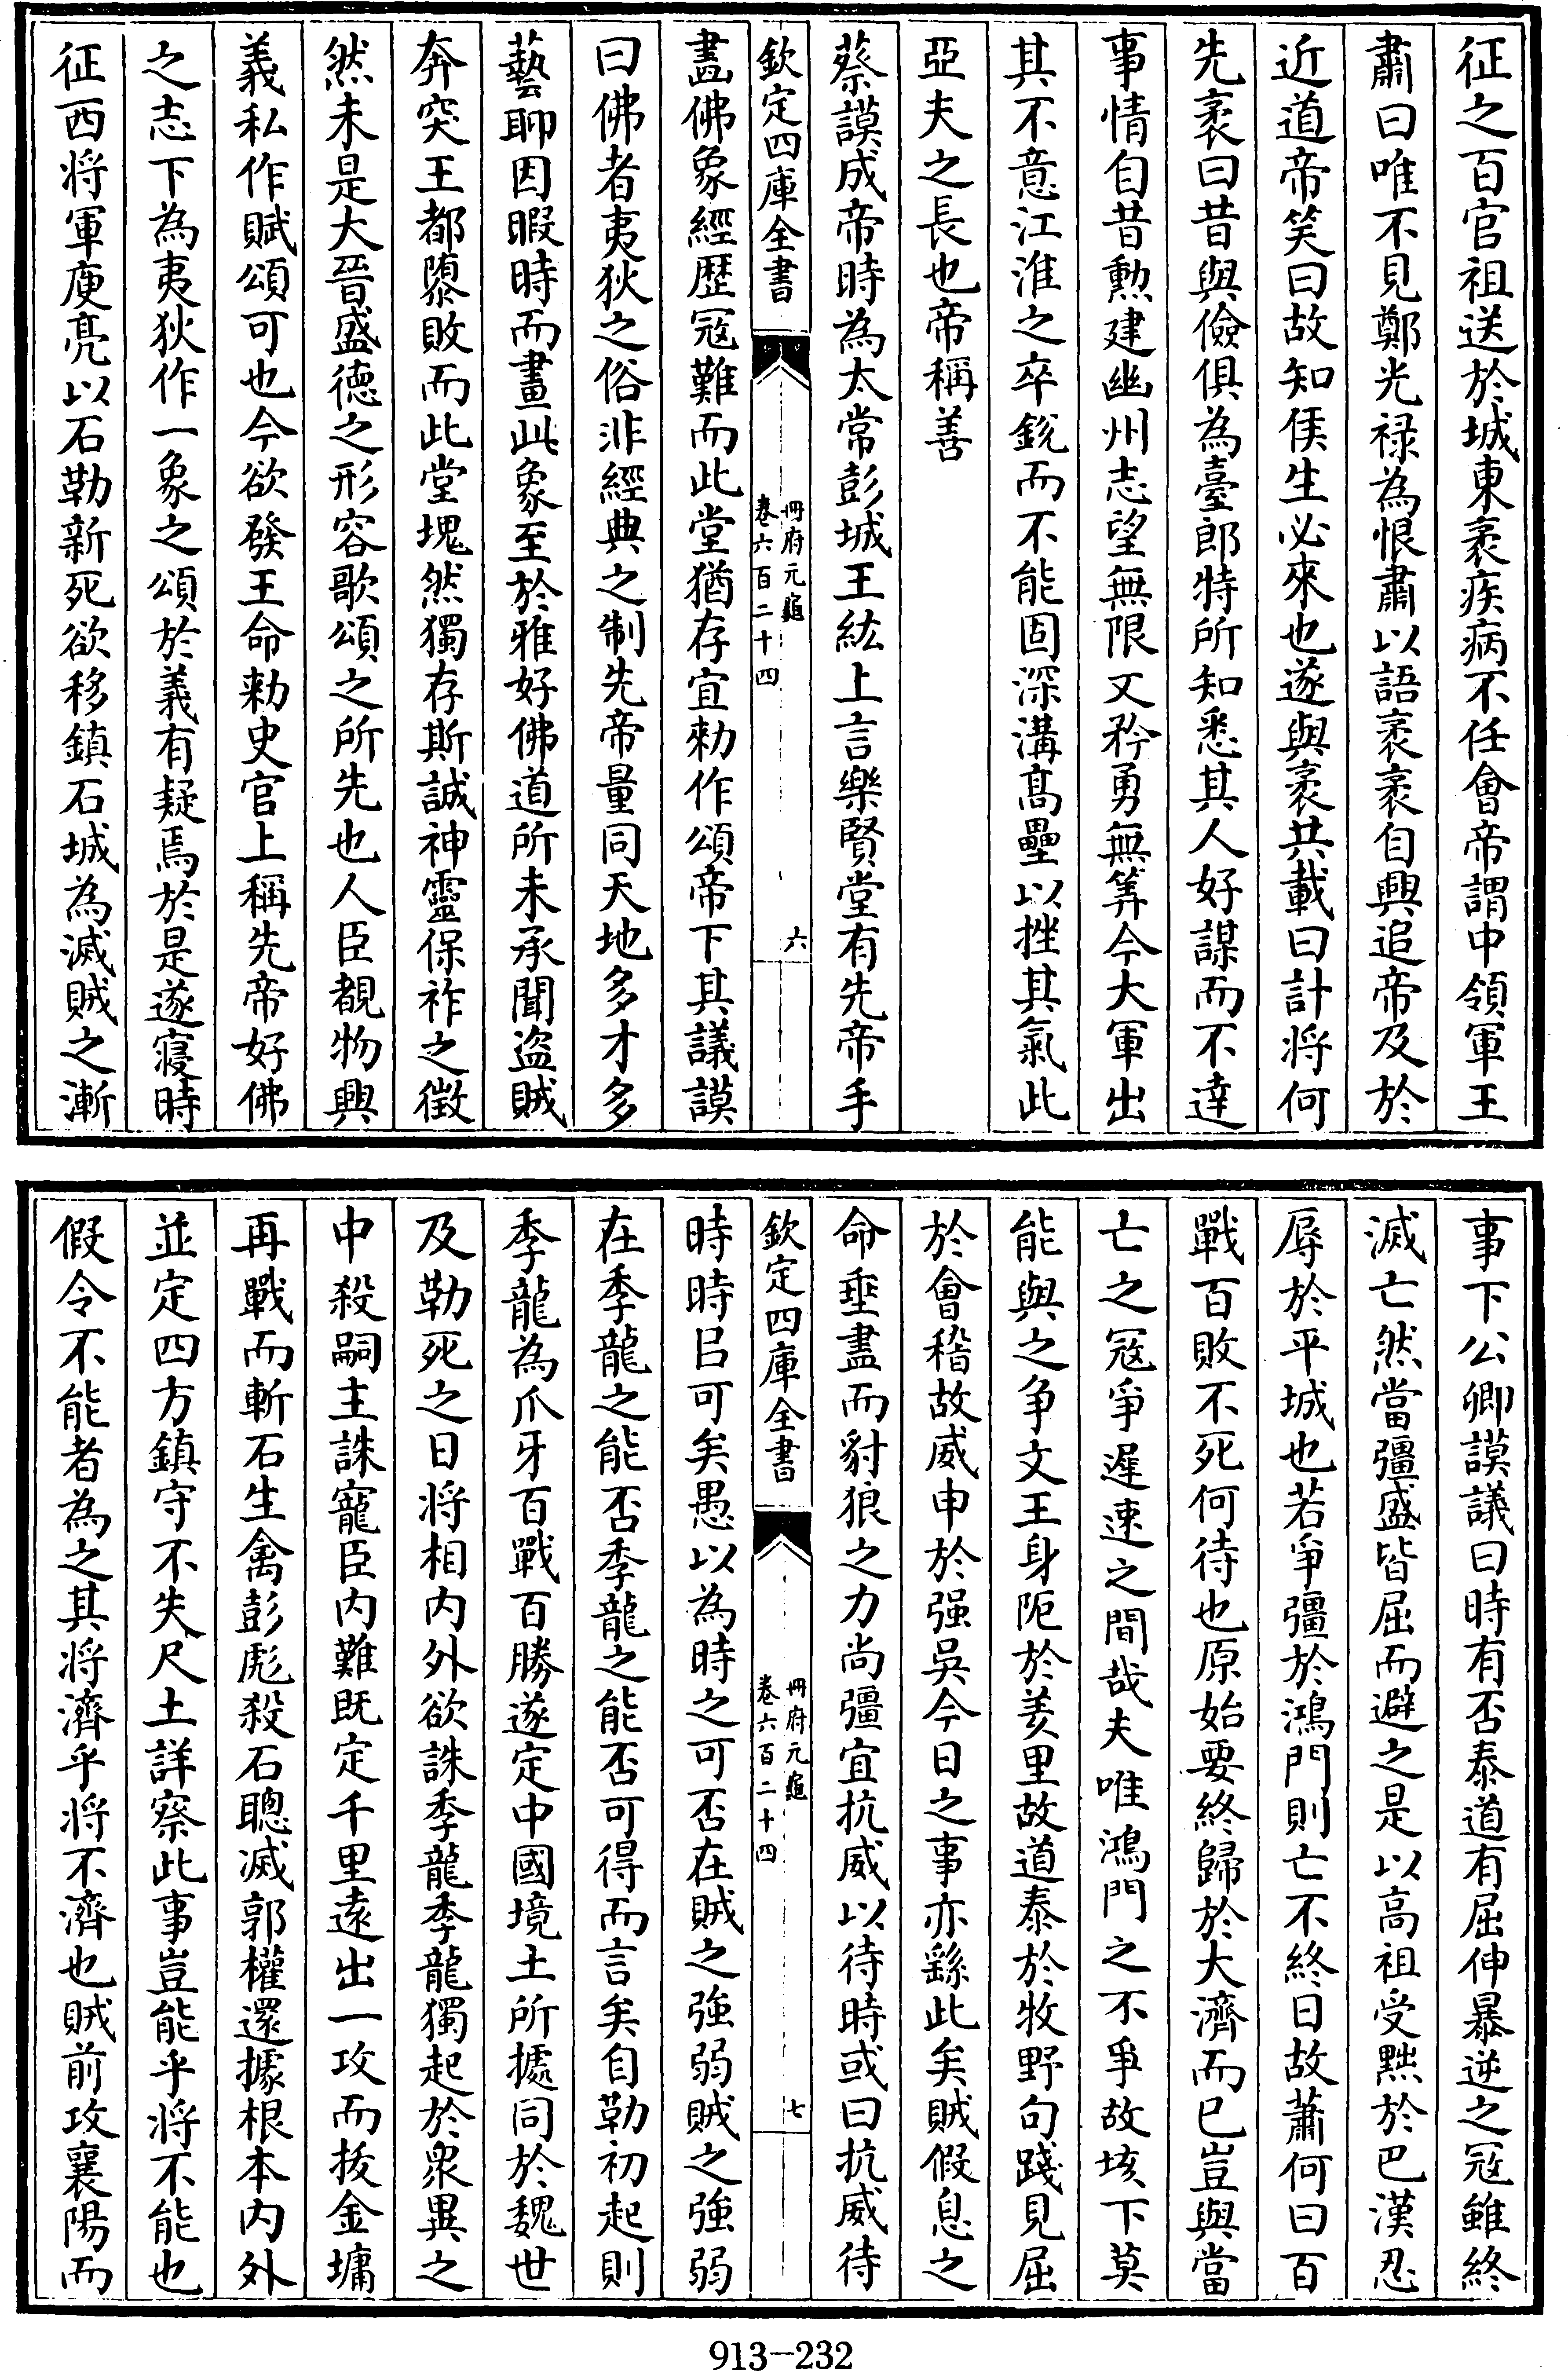 征之百官祖送於城東袤疾病不任會帝謂中領軍王
肅曰唯不見鄭光禄為恨肅以語袤袤自輿追帝及於
近道帝笑曰故知侯生必來也遂與袤共載曰計将何
先袤曰昔與儉俱為臺郎特所知悉其人好謀而不達
事情自昔勲建幽州志望無限文矜勇無筭今大軍出
其不意江淮之卒鋭而不能固深溝髙壘以挫其氣此
亞夫之長也帝稱善
蔡謨成帝時為太常彭城王紘上言樂賢堂有先帝手
欽定四庫全書
冊府元龜
卷六百二十四
六
畫佛象經歴冦難而此堂猶存宜勅作頌帝下其議謨
曰佛者夷狄之俗非經典之制先帝量同天地多才多
藝聊因暇時而畫此象至於雅好佛道所未承聞盗賊
奔突王都隳敗而此堂塊然獨存斯誠神靈保祚之徵
然未是大晉盛徳之形容歌頌之所先也人臣覩物興
義私作賦頌可也今欲發王命勅史官上稱先帝好佛
之志下為夷狄作一象之頌於義有疑焉於是遂寝時
征西将軍庾亮以石勒新死欲移鎮石城為滅賊之漸
事下公卿謨議曰時有否泰道有屈伸暴逆之冦雖終
滅亡然當彊盛皆屈而避之是以高祖受黜於巴漢忍
辱於平城也若爭彊於鴻門則亡不終日故蕭何曰百
戰百敗不死何待也原始要終歸於大濟而已豈與當
亡之冦爭遲速之間哉夫唯鴻門之不爭故垓下莫
能與之争文王身阨於羑里故道泰於牧野句踐見屈
於會稽故威申於强吳今日之事亦繇此矣賊假息之
命垂盡而豺狼之力尚彊宜抗威以待時或曰抗威待
欽定四庫全書
冊府元龜
卷六百二十四
七
時時㠯可矣愚以為時之可否在賊之強弱賊之強弱
在季龍之能否季龍之能否可得而言矣自勒初起則
季龍為爪牙百戰百勝遂定中國境土所㨿同於魏世
及勒死之日将相内外欲誅季龍季龍獨起於衆異之
中殺嗣主誅寵臣内難既定千里遠出一攻而拔金墉
再戰而斬石生禽彭彪殺石聰滅郭權還據根本内外
並定四方鎮守不失尺土詳察此事豈能乎将不能也
假令不能者為之其将濟乎将不濟也賊前攻襄陽而
913-232